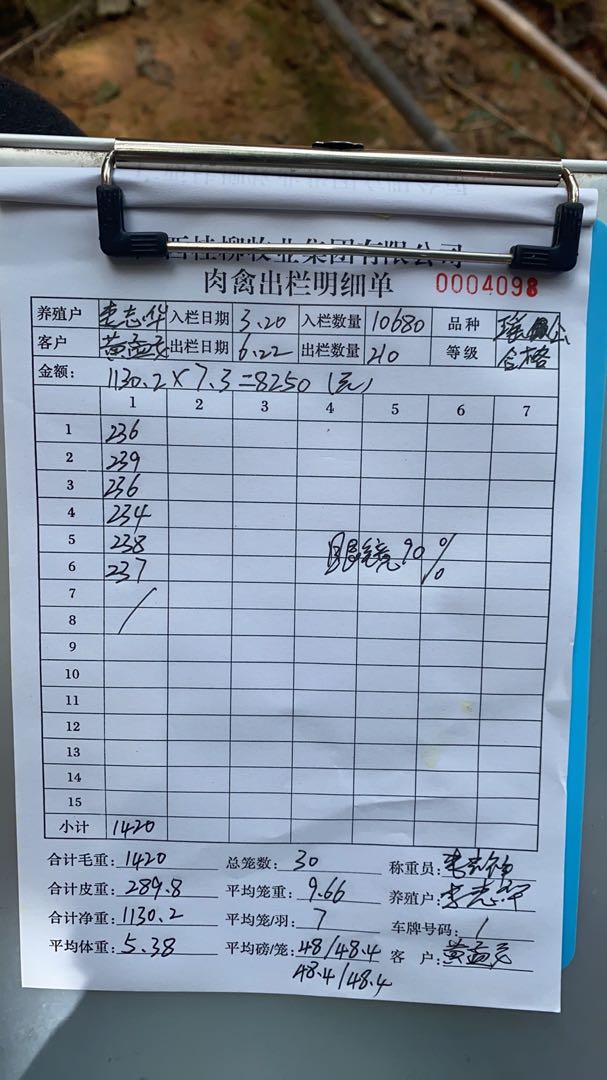 西桂柳牧业集团有限公司
肉禽出栏明细单 0004098
养殖户 李志华 入栏日期 3.20 入栏数量 10680 品种
客户 黄孟亮 出栏日期 6.22 出栏数量 210 等级 合格
金额: 1130.2×7.3=8250(元)
1 2 3 4 5 6 7
1 236
2 239
3 236
4 234
5 238 眼镜90%
6 237
7
8 /
9
10
11
12
13
14
15
小计 1420
合计毛重: 1420 总笼数: 30 称重员:
合计皮重: 289.8 平均笼重: 9.66 养殖户: 李志华
合计净重: 1130.2 平均笼/羽: 7 车牌号码: 1
平均体重: 5.38 平均磅/笼: 48/48.4 客 户: 黄孟亮
48.4/48.4